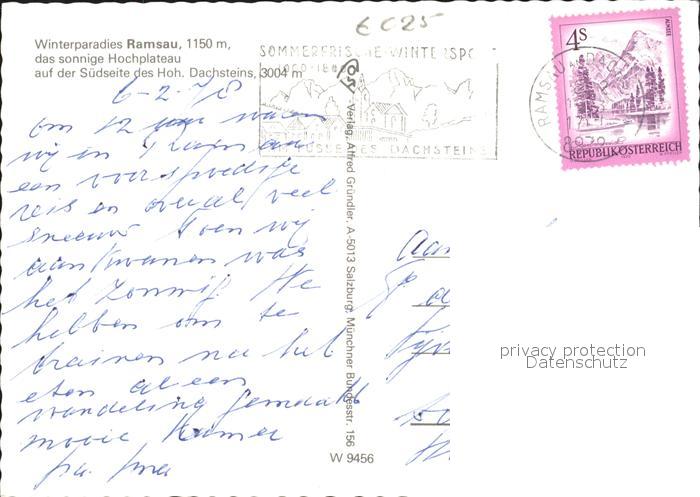 6025
Winterparadies Ramsau, 1150 m,
das sonnige Hochplateau
auf der Südseite des Hoh. Dachsteins, 3004 m
SOMMERFRISCHE-WINTERSPORT
DACHSTEINS
4S
ALMSEE
REPUBLIK ÖSTERREICH
RAMSAU
8972
6-2-78
om 12 uur waren
wij in Ramsau
een voorspoedige
reis en overal veel
sneeuw Toen wij
aankwamen was
het zonnig. We
hebben om te
trainen na het
eten al een
wandeling gemaakt
mooie kamer
Verlag Alfred Gründler, A-5013 Salzburg, Münchner Bundesstr. 156
W 9456
Aan
privacy protection
Datenschutz